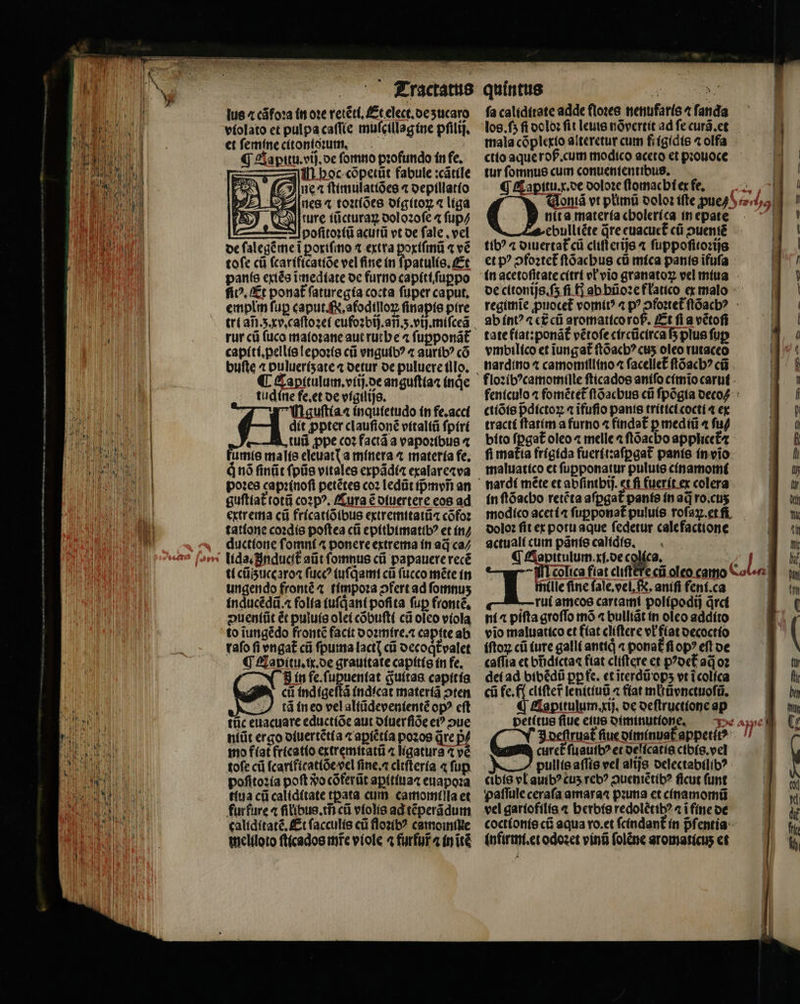 Tractatus
lus ⁊ cāfoꝛa in oꝛe retēti. Et elect. de ʒucaro
violato et pulpa caſſie muſcillagine pſilij.
et ſemine citonioꝛum.
¶ Capitu. vij. de ſomno pꝛofundo in fe.
N hoc cōpetūt fabule
ne ⁊ ſtimulatiōes ⁊ depillatio
nes ⁊ toꝛtiōes digitoꝝ ⁊ liga
ture iūcturaꝝ doloꝛoſe ⁊ ſup/
poſitoꝛiū acutū vt de ſale. vel
de ſalegēme ī poꝛcīno ⁊ extra poꝛcinū ⁊ vē
toſe cū ſcarificatiōe vel ſine in ſpatulis. Et
panis exiēs īmediate de furno capiti ſuppo
ſitꝰ. Et ponat̄ ſaturegia cocta ſuper caput.
emplm̄ ſup caput. ℞. aſodilloꝝ ſinapis pire
tri an̄. ʒ. xv. caſtoꝛei eufoꝛbij. an̄. ʒ. vij. miſcea
rur cū ſuco maioꝛane aut ruthe ⁊ ſupponāt̄
capiti. pellis lepoꝛis cū vnguibꝰ ⁊ auribꝰ cō
buſte ⁊ pulueriʒate ⁊ detur de puluere illo.
¶ Capitulum. viij. de anguſtia ⁊ inqͥe
tudine fe. et de vigilijs.
Nguſtia ⁊ inquietudo in fe. acci
dit ꝓpter clauſionē vitaliū ſpiri
tuū ꝓpe coꝛ factā a vapoꝛibus ⁊
fumis malis eleuatꝭ a minera ⁊ materia fe.
q̄ nō ſinūt ſpūs vitales expādi ⁊ exalare ⁊ va
poꝛes capꝛinoſi petētes coꝛ ledūt ip̄m vn̄ an
guſtiat̄ totū coꝛpꝰ. Cura ē diuertere eos ad
extrema cū fricatiōibus extremitatū ⁊ cōfoꝛ
tatione coꝛdis poſtea cū epithimatibꝰ et in/
ductione ſomni ⁊ ponere extrema in aq̄ ca/
lida. Inducit̄ aūt ſomnus cū papauere recē
ti cū ʒuccaro ⁊ ſuccꝰ iuſq̄ami cū ſucco mēte in
ungendo frontē ⁊ timpoꝛa ꝯfert ad ſomnuʒ
inducēdū. ⁊ folia iuſq̄ani poſita ſup frontē.
ꝯueniūt ēt puluis olei cōbuſti cū oleo viola
to iungēdo frontē facit doꝛmire. ⁊ capite ab
raſo ſi vngat̄ cū ſpuma lactꝭ cū decoqt̄ valet
¶ Capitu. ix. de grauitate capitis in fe.
I in fe. ſupueniat g̈uitas capitis
cū indigeſtā indicat materiā ꝯten
tā in eo vel aliūde veniente opꝰ eſt
tūc euacuare eductiōe aut diuerſiōe eiꝰ ꝯue
niūt ergo diuertētia ⁊ apiētia poꝛos q̄re p̄/
mo fiat fricatio extremitatū ⁊ ligatura ⁊ vē
toſe cū ſcarificatiōe vel ſine. ⁊ cliſteria ⁊ ſup
poſitoꝛia poſt ꝟo cōferūt apitiua ⁊ euapoꝛa
tiua cū caliditate tꝑata cum camomilla et
furfure ⁊ ſilibus. tn̄ cū violis ad tēperādum
caliditatē. Et ſacculis cū floꝛibꝰ camomille
meliloto ſticados mr̄e viole ⁊ furfur̄ ⁊ in itē
quintus
ſa caliditate adde floꝛes nenufaris ⁊ ſanda
los. ſꝫ ſi doloꝛ ſit leuis nō vertit ad ſe curā. et
mala cōplexio alteretur cum frigidis ⁊ olfa
ctio aque roſ. cum modico aceto et pꝛouoce
tur ſomnus cum conuenientibus.
¶ Capitu. x. de doloꝛe ſtomachi ex fe.
Qoniā vt plīmū doloꝛ iſte ꝓue/
nit a materia cholerica in epate
ebulliēte q̄re euacuet̄ cū ꝯueniē
tibꝰ ⁊ diuertat̄ cū cliſterijs ⁊ ſuppoſitoꝛijs
et pꝰ ꝯfoꝛtet̄ ſtōachus cū mica panis īfuſa
in acetoſitate citri vl̄ vīo granatoꝝ vel miua
de citonijs. ſꝫ ſi ſꝭ ab hūoꝛe flatico ex malo
regimīe ꝓuocet̄ vomitꝰ ⁊ pꝰ ꝯfoꝛtet̄ ſtōachꝰ
ab intꝰ ⁊ ex̄ cū aromatico roſ. Et ſi a vētoſi
tate fiat: ponāt̄ vētoſe circūcirca ſꝫ plus ſup
vmbilico et īungat̄ ſtōachꝰ cuʒ oleo rutaceo
nardino ⁊ camomillino ⁊ ſacellet̄ ſtōachꝰ cū
floꝛibꝰ camomille ſticados aniſo cimīo carui
feniculo ⁊ fomētet̄ ſtōachus cū ſpōgia decoc/
ctiōis p̄dictoꝝ ⁊ īfuſio panis tritici cocti ⁊ ex
tracti ſtatim a furno ⁊ findat̄ ꝑ mediū ⁊ ſu/
bito ſpgat̄ oleo ⁊ melle ⁊ ſtōacho applicet̄ ⁊
ſi mat̄ia frigida fuerit: aſpgat̄ panis in vīo
maluatico et ſupponatur puluis cinamomi
nardi mēte et abſinthij. et ſi fuerit ex colera
in ſtōacho retēta aſpgat̄ panis in aq̄ ro. cuʒ
modico aceti ⁊ ſupponat̄ puluis roſaꝝ. et ſi
doloꝛ fit ex potu aque ſedetur calefactione
actuali cum pānis calidis.
¶ Capitulum. xi. de colica.
N colica fiat cliſtere cū oleo camo
mille ſine ſale, vel, ℞. aniſi feni. ca
rui ameos cartami polipodij q̄rci
ni ⁊ piſta groſſo mō ⁊ bulliāt in oleo addito
vīo maluatico et fiat cliſtere vl̄ fiat decoctio
iſtoꝝ cū iure galli antiq̄ ⁊ ponat̄ ſi opꝰ eſt de
caſſia et bn̄dicta ⁊ fiat cliſtere et pꝰ det̄ aq̄ oꝛ
dei ad bibēdū ꝓp fe. et iterdū opʒ vt ī colica
cū fe. ſꝭ cliſter̄ lenitiuū ⁊ fiat mltū vnctuoſū.
¶ Capitulum. xij. de deſtructione ap
petitus ſiue eius diminutione.
I deſtruat̄ ſiue diminuat̄ appetitꝰ
curet̄ ſuauibꝰ et delicatis cibis. vel
pullis aſſis vel alijs delectabilibꝰ
cibis vl̄ auibꝰ cuʒ rebꝰ ꝯuenientibꝰ ſicut ſunt
paſſule ceraſa amara ⁊ pꝛuna et cinamomū
vel gariofilis ⁊ herbis redolētibꝰ ⁊ ī fine de
coctionis cū aqua ro. et ſcindant̄ in p̄ſentia
infirmi. et odoꝛet vinū ſolēne aromaticuʒ et